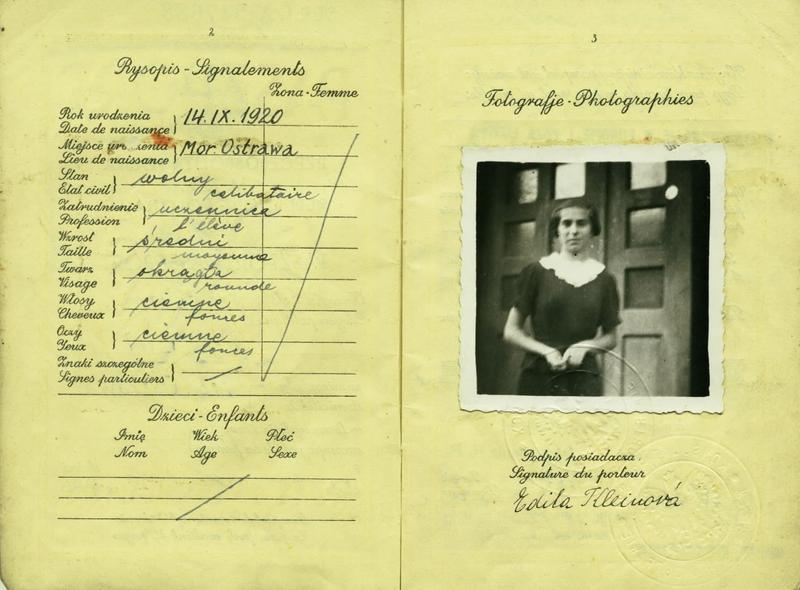 2
Rysopis - Signalements
Żona - Femme
Rok urodzenia
Date de naissance
14. IX. 1920
Miejsce urodzenia
Lieu de naissance
Mor. Ostrawa
Stan
Etat civil
wolny
celibataire
Zatrudnienie
Profession
uczennica
l'élève
Wzrost
Taille
średni
moyenne
Twarz
Visage
okrągła
rounde
Włosy
Cheveux
ciemne
fonces
Oczy
Yeux
ciemne
fonces
Znaki szczególne
Signes particuliers
Dzieci - Enfants
Imię Wiek Płeć
Nom Age Sexe
3
Fotografje - Photographies
Podpis posiadacza
Signature du porteur
Edita Kleinová